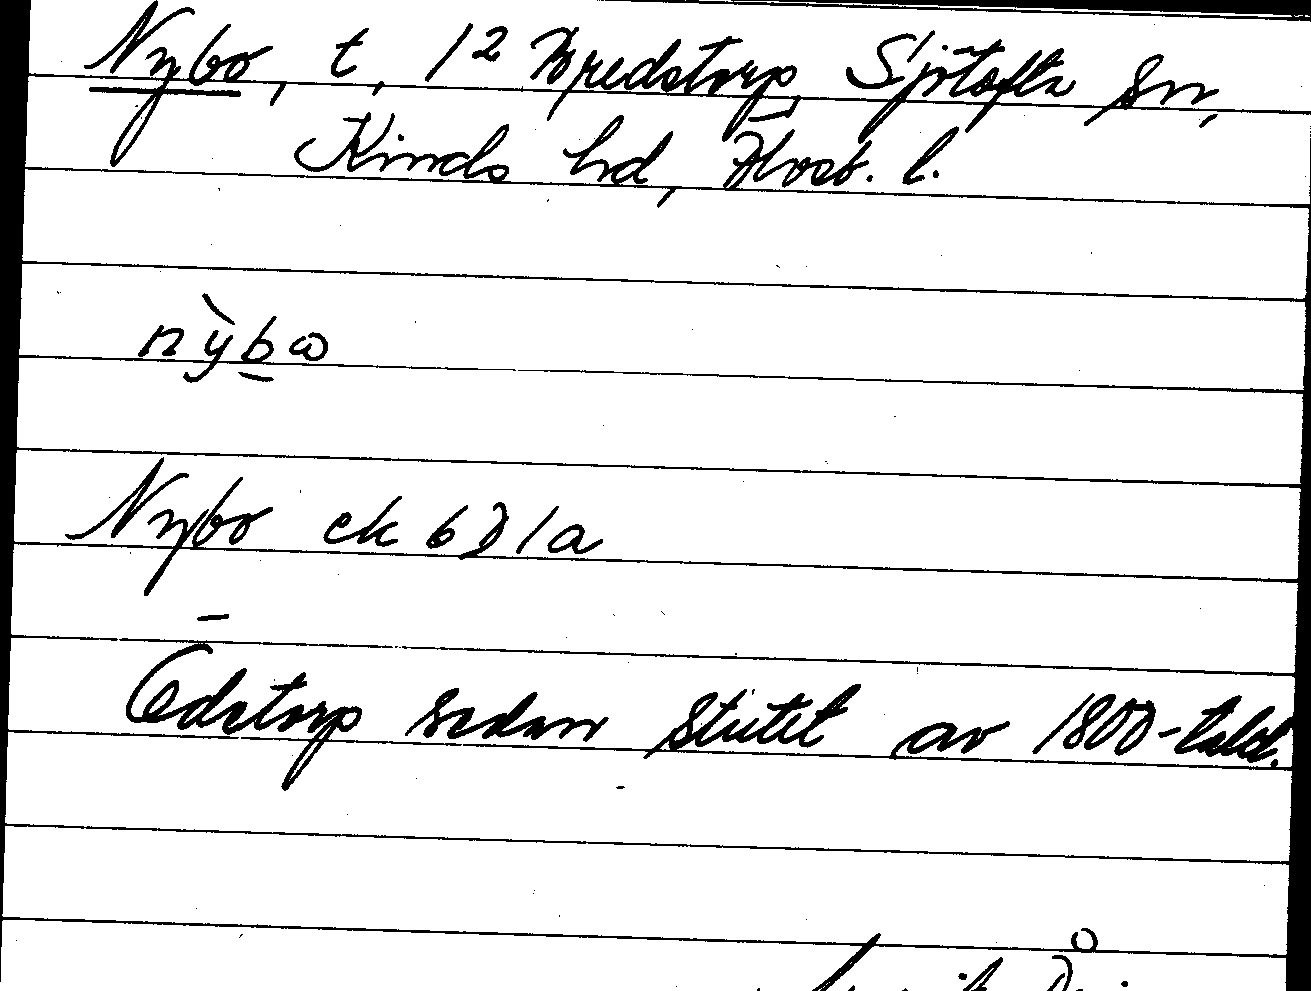 Nybo, t, 1² Bredstorp, Sjötofta sn,
Kinds hd, Älvsb. l.
nỳb̲ω
Nybo ek 6D1a
Ödetorp sedan slutet av 1800-talet.